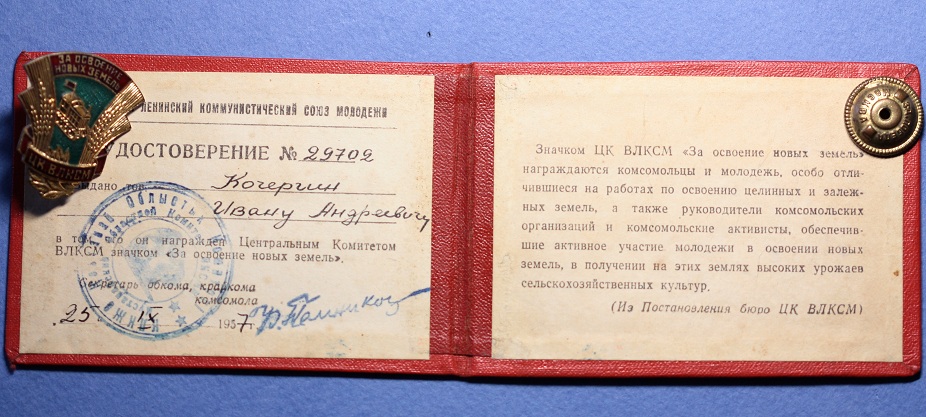 ЗА ОСВОЕНИЕ
НОВЫХ ЗЕМЕЛЬ
ЦК ВЛКСМ
ЛЕНИНСКИЙ КОММУНИСТИЧЕСКИЙ СОЮЗ МОЛОДЕЖИ
УДОСТОВЕРЕНИЕ № 29709
Выдано тов. Кочергин
Ивану Андреевичу
в том, что он награжден Центральным Комитетом
ВЛКСМ значком «За освоение новых земель».
Секретарь обкома, крайкома
комсомола
25 IX 1957 г.
Значком ЦК ВЛКСМ «За освоение новых земель»
награждаются комсомольцы и молодежь, особо отли-
чившиеся на работах по освоению целинных и залеж-
ных земель, а также руководители комсомольских
организаций и комсомольские активисты, обеспечив-
шие активное участие молодежи в освоении новых
земель, в получении на этих землях высоких урожаев
сельскохозяйственных культур.
(Из Постановления бюро ЦК ВЛКСМ)